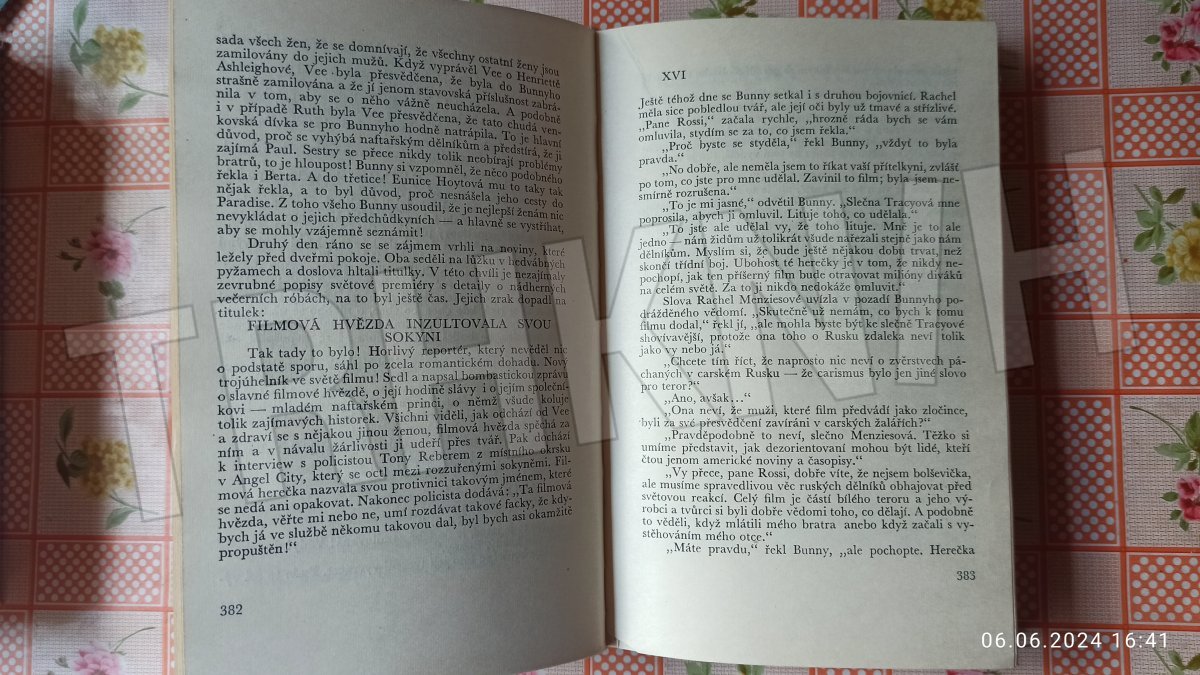 sada všech žen, že se domnívají, že všechny ostatní ženy jsou
zamilovány do jejich mužů. Když vyprávěl Vee o Henriettě
Ashleighové, Vee byla přesvědčena, že byla do Bunnyho
strašně zamilována a že jí jenom stavovská příslušnost zabrá-
nila v tom, aby se o něho vážně neucházela. A podobně
i v případě Ruth byla Vee přesvědčena, že tato chudá ven-
kovská dívka se pro Bunnyho hodně natrápila. To je hlavní
důvod, proč se vyhýbá naftařským dělníkům a předstírá, že ji
zajímá Paul. Sestry se přece nikdy tolik neobírají problémy
bratrů, to je hloupost! Bunny si vzpomněl, že něco podobného
řekla i Berta. A do třetice! Eunice Hoytová mu to taky tak
nějak řekla, a to byl důvod, proč nesnášela jeho cesty do
Paradise. Z toho všeho Bunny usoudil, že je nejlépe ženám nic
nevykládat o jejich předchůdkyních — a hlavně se vystříhat,
aby se mohly vzájemně seznámit!
Druhý den ráno se se zájmem vrhli na noviny, které
ležely před dveřmi pokoje. Oba seděli na lůžku v hedvábných
pyžamech a doslova hltali titulky. V této chvíli je nezajímaly
zevrubné popisy světové premiéry s detaily o nádherných
večerních róbách, na to byl ještě čas. Jejich zrak dopadl na
titulek:
FILMOVÁ HVĚZDA INZULTOVALA SVOU
SOKYNI
Tak tady to bylo! Horlivý reportér, který nevěděl nic
o podstatě sporu, sáhl po zcela romantickém dohadu. Nový
trojúhelník ve světě filmu! Sedl a napsal bombastickou zprávu
o slavné filmové hvězdě, o její hodině slávy i o jejím společní-
kovi — mladém naftařském princi, o němž všude koluje
tolik zajímavých historek. Všichni viděli, jak odchází od Vee
a zdraví se s nějakou jinou ženou, filmová hvězda spěchá za
ním a v návalu žárlivosti ji udeří přes tvář. Pak dochází
k interview s policistou Tony Reberem z místního okrsku
v Angel City, který se octl mezi rozzuřenými sokyněmi. Fil-
mová herečka nazvala svou protivnici takovým jménem, které
se nedá ani opakovat. Nakonec policista dodává: „Ta filmová
hvězda, věřte mi nebo ne, umí rozdávat takové facky, že kdy-
bych já ve službě někomu takovou dal, byl bych asi okamžitě
propuštěn!“
382
XVI
Ještě téhož dne se Bunny setkal i s druhou bojovnicí. Rachel
měla sice pobledlou tvář, ale její oči byly už tmavé a střízlivé.
„Pane Rossi,“ začala rychle, „hrozně ráda bych se vám
omluvila, stydím se za to, co jsem řekla.“
„Proč byste se styděla,“ řekl Bunny, „vždyť to byla
pravda.“
„No dobře, ale neměla jsem to říkat vaší přítelkyni, zvlášť
po tom, co jste pro mne udělal. Zavinil to film; byla jsem ne-
smírně rozrušena.“
„To je mi jasné,“ odvětil Bunny. „Slečna Tracyová mne
poprosila, abych ji omluvil. Lituje toho, co udělala.“
„To jste ale udělal vy, že toho lituje. Mně je to ale
jedno — nám židům už tolikrát všude nařezali stejně jako nám
dělníkům. Myslím si, že bude ještě nějakou dobu trvat, než
skončí třídní boj. Ubohost té herečky je v tom, že nikdy ne-
pochopí, jak ten příšerný film bude otravovat milióny diváků
na celém světě. Za to ji nikdo nedokáže omluvit.“
Slova Rachel Menziesové uvízla v pozadí Bunnyho po-
drážděného vědomí. „Skutečně už nemám, co bych k tomu
filmu dodal,“ řekl jí, „ale mohla byste být ke slečně Tracyové
shovívavější, protože ona toho o Rusku zdaleka neví tolik
jako vy nebo já.“
„Chcete tím říct, že naprosto nic neví o zvěrstvech pá-
chaných v carském Rusku — že carismus bylo jen jiné slovo
pro teror?“
„Ano, avšak...“
„Ona neví, že muži, které film předvádí jako zločince,
byli za své přesvědčení zavíráni v carských žalářích?“
„Pravděpodobně to neví, slečno Menziesová. Těžko si
umíme představit, jak dezorientovaní mohou být lidé, kteří
čtou jenom americké noviny a časopisy.“
„Vy přece, pane Rossi, dobře víte, že nejsem bolševička,
ale musíme spravedlivou věc ruských dělníků obhajovat před
světovou reakcí. Celý film je částí bílého teroru a jeho vý-
robci a tvůrci si byli dobře vědomi toho, co dělají. A podobně
to věděli, když mlátili mého bratra anebo když začali s vy-
stěhováním mého otce.“
„Máte pravdu,“ řekl Bunny, „ale pochopte. Herečka
383
TRHKNIH
06.06.2024 16:41